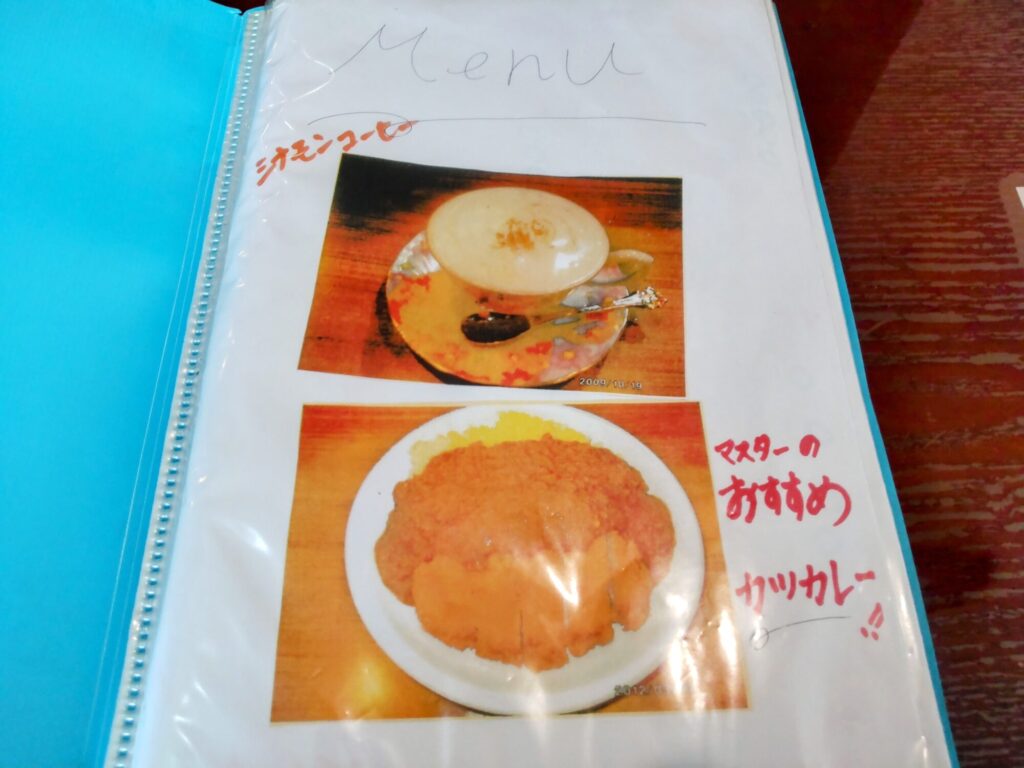 Menu
シナモンコーヒー
2009/10/19
マスターの
おすすめ
カツカレー!!